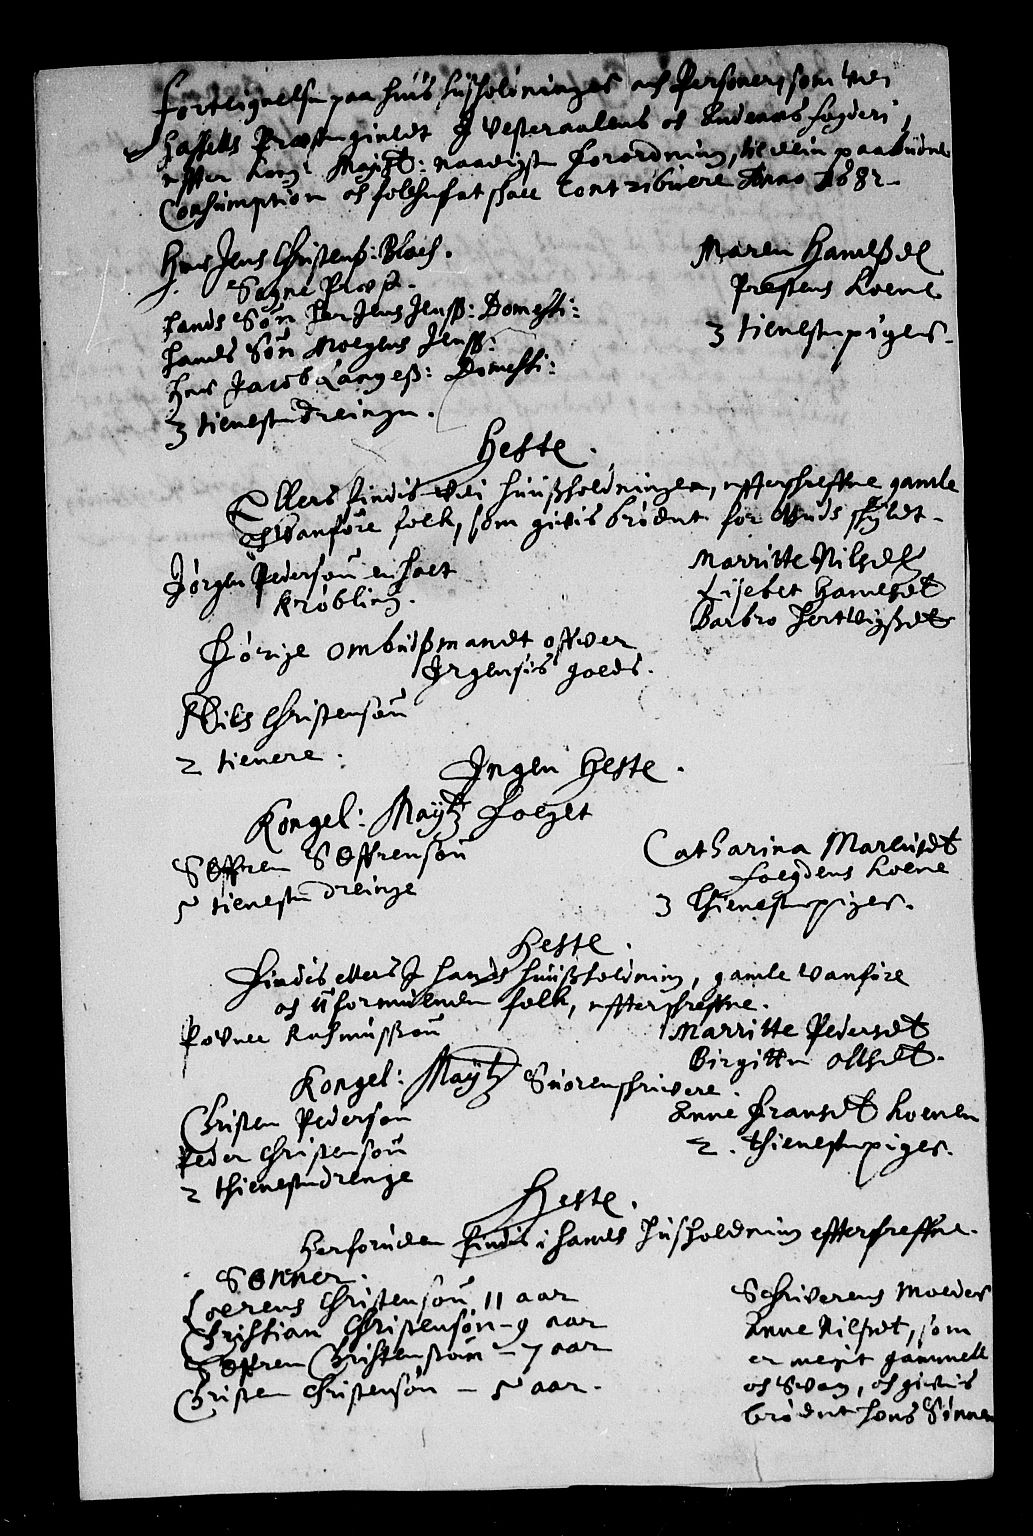 Fortegnelse paa huis huusholdninger och Personer, som udi
Hassells Præstegieldt J Vesteraalens och Andenæs fogderi,
effter Kongl: Mayst: naadigste forordning, til dend paabudne
Consumption och folcheskat skall Contribuere Anno 1682.
Her Jens Christenß: Bloch.
Sogne Præst.
Hands Søn Her Jens Jenß: Domesti:
Hands Søn Mogens Jenß:
Her Jacob Langeß: Domesti:
3 tieneste dreinge.
Maren Hansß dt
Prestens Koene
3 tieneste piiger.
Heste.
Ellers findis udi huußholdningen, effterschreffne gamle
och Vanføre folk, som givis brødet for Guds skyldt.
Jørgen Pedersøn en halt
Krøbling.
Marritte Nilsdt
Lisebet Hansdt
Barbro Hertvigßdt
Hørige ombudßmandt offver
Jrgensis goeds.
Nils Christensøn
2 tienere:
Jngen Heste.
Kongel: Mayts Foeget
Søffren Søffrensøn
5 tieneste dreinge
Catharina Marcusdt
foegdens Koene
3 Thieneste piiger.
Heste.
Findis ellers J hands huußholdning, gamle vanføre
och uformuende folk, effterskreffne.
Povuel Rasmussøn
Marritte Pedersdt
Birgitte Olsdt.
Kongel: Mayts Suorenschrivere.
Christen Pedersøn
Peder Christensøn
2 thieneste drenge
Anne Fransdt Koenen
2. thieneste piiger.
Heste.
Herforuden findis i hands Husholdning effterskreffne.
Sønner.
Loerens Christensøn 11 aar
Christian Christensøn - 9 aar
Søffren Christensøn - 7 aar
Christen Christensøn - 5 aar.
Schriverens Moeder
Anne Nilsdt, som
er megit gammell
och Svag, och givis
brødet hons Sønner